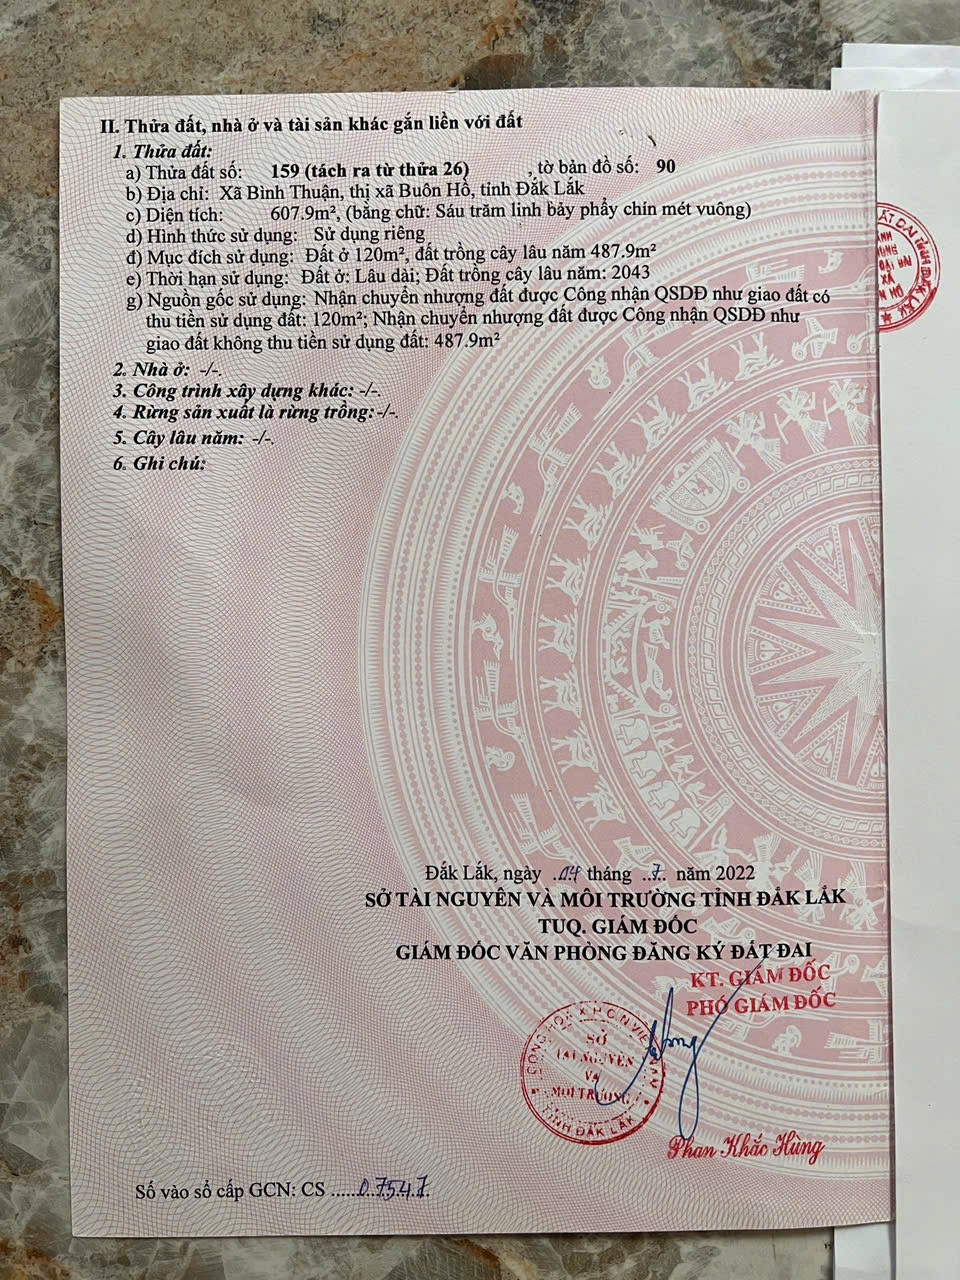 II. Thửa đất, nhà ở và tài sản khác gắn liền với đất
1. Thửa đất:
a) Thửa đất số: 159 (tách ra từ thửa 26) , tờ bản đồ số: 90
b) Địa chỉ: Xã Bình Thuận, thị xã Buôn Hồ, tỉnh Đắk Lắk
c) Diện tích: 607.9m², (bằng chữ: Sáu trăm linh bảy phẩy chín mét vuông)
d) Hình thức sử dụng: Sử dụng riêng
đ) Mục đích sử dụng: Đất ở 120m², đất trồng cây lâu năm 487.9m²
e) Thời hạn sử dụng: Đất ở: Lâu dài; Đất trồng cây lâu năm: 2043
g) Nguồn gốc sử dụng: Nhận chuyển nhượng đất được Công nhận QSDĐ như giao đất có
thu tiền sử dụng đất: 120m²; Nhận chuyển nhượng đất được Công nhận QSDĐ như
giao đất không thu tiền sử dụng đất: 487.9m²
2. Nhà ở: -/-.
3. Công trình xây dựng khác: -/-.
4. Rừng sản xuất là rừng trồng: -/-.
5. Cây lâu năm: -/-.
6. Ghi chú:
Đắk Lắk, ngày .04 tháng ..7.. năm 2022
SỞ TÀI NGUYÊN VÀ MÔI TRƯỜNG TỈNH ĐẮK LẮK
TUQ. GIÁM ĐỐC
GIÁM ĐỐC VĂN PHÒNG ĐĂNG KÝ ĐẤT ĐAI
KT. GIÁM ĐỐC
PHÓ GIÁM ĐỐC
CỘNG HÒA X.H.C.N VIỆT NAM
SỞ
TÀI NGUYÊN
VÀ
MÔI TRƯỜNG
TỈNH ĐẮK LẮK
Phan Khắc Hùng
Số vào sổ cấp GCN: CS ......07547.